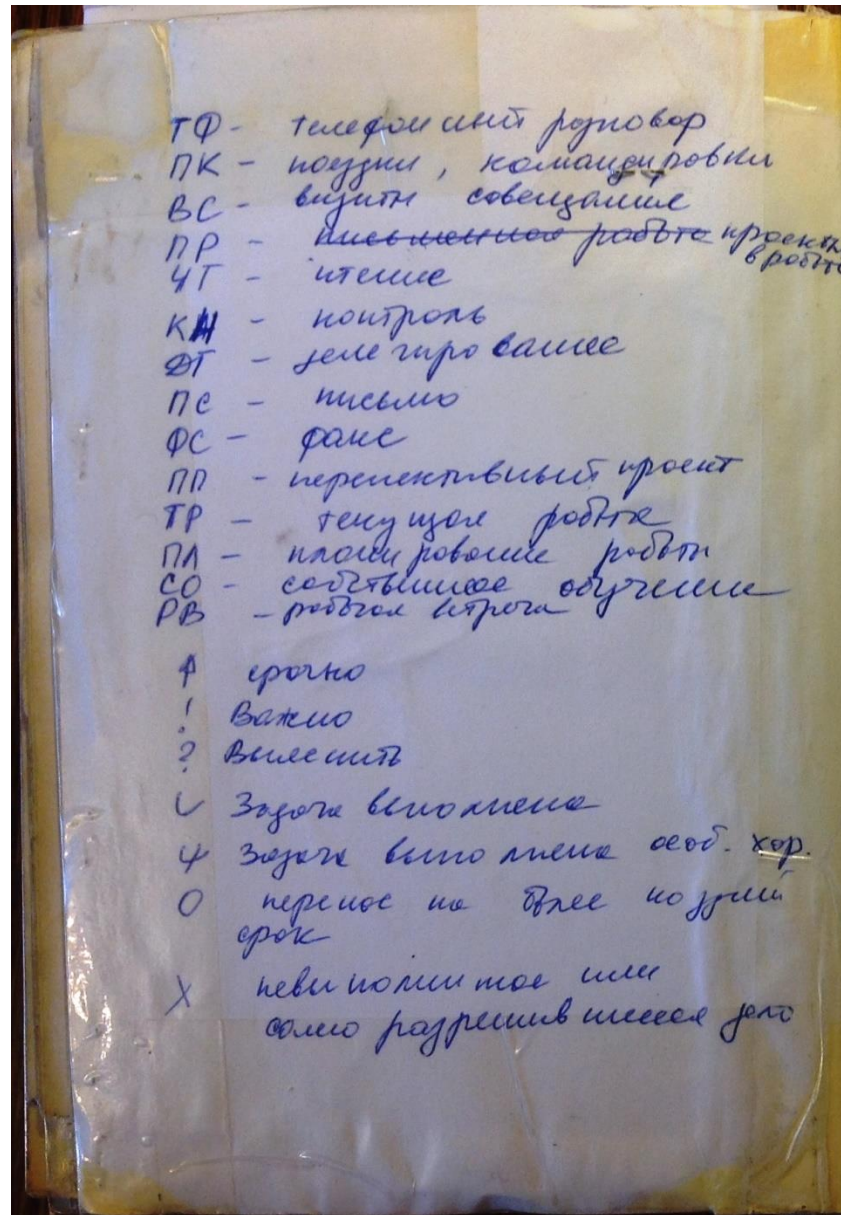 ТФ - телефонный разговор
ПК - поездки, командировки
ВС - визиты совещание
ПР - письменная работа проекты
в работе
ЧТ - чтение
КН - контроль
ДТ - делегирование
ПС - письмо
ФС - факс
ПП - перспективный проект
ТР - текущая работа
ПЛ - планирование работы
СО - собственное обучение
РВ - рабочая встреча
↑ срочно
! Важно
? Выяснить
✓ Задача выполнена
Ψ Задача выполнена особ. хор.
О перенос на более поздний
срок
Х невыполнимое или
само разрешившееся дело